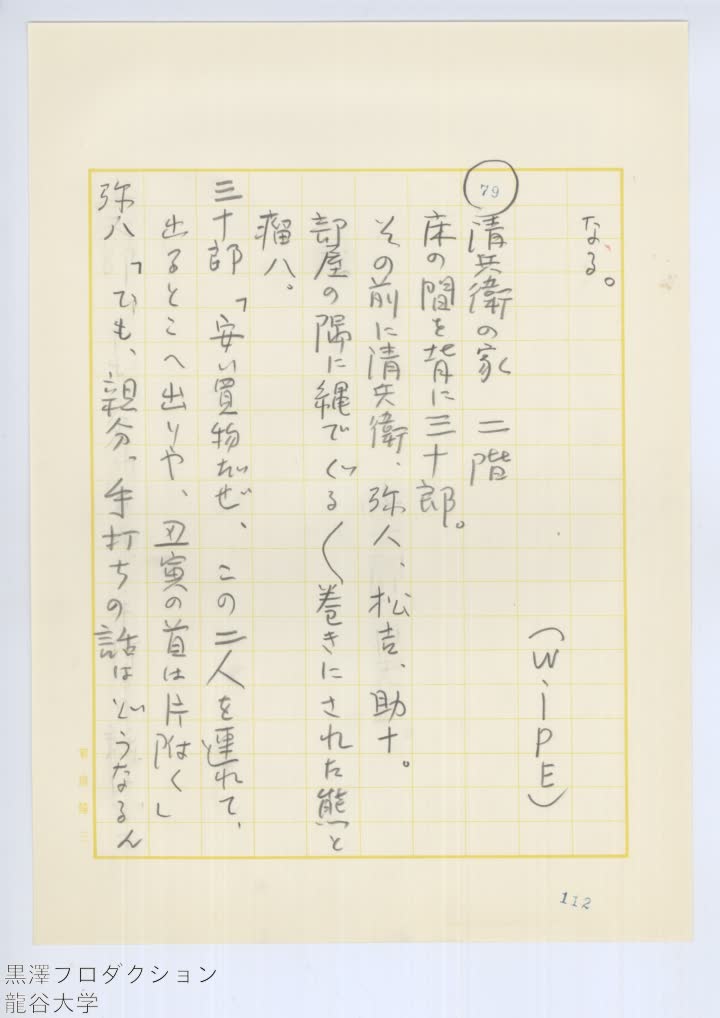 なる。
(WIPE)
79
清兵衛の家 二階
床の間を背に三十郎。
その前に清兵衛、弥八、松吉、助十。
部屋の隅に縄でぐる〳〵巻きにされた熊と
瘤八。
三十郎「安い買物だぜ、この二人を連れて、
出るとこへ出りや、丑寅の首は片附くし
弥八「でも、親分、手打ちの話はどうなるん
112
黒澤プロダクション
龍谷大学